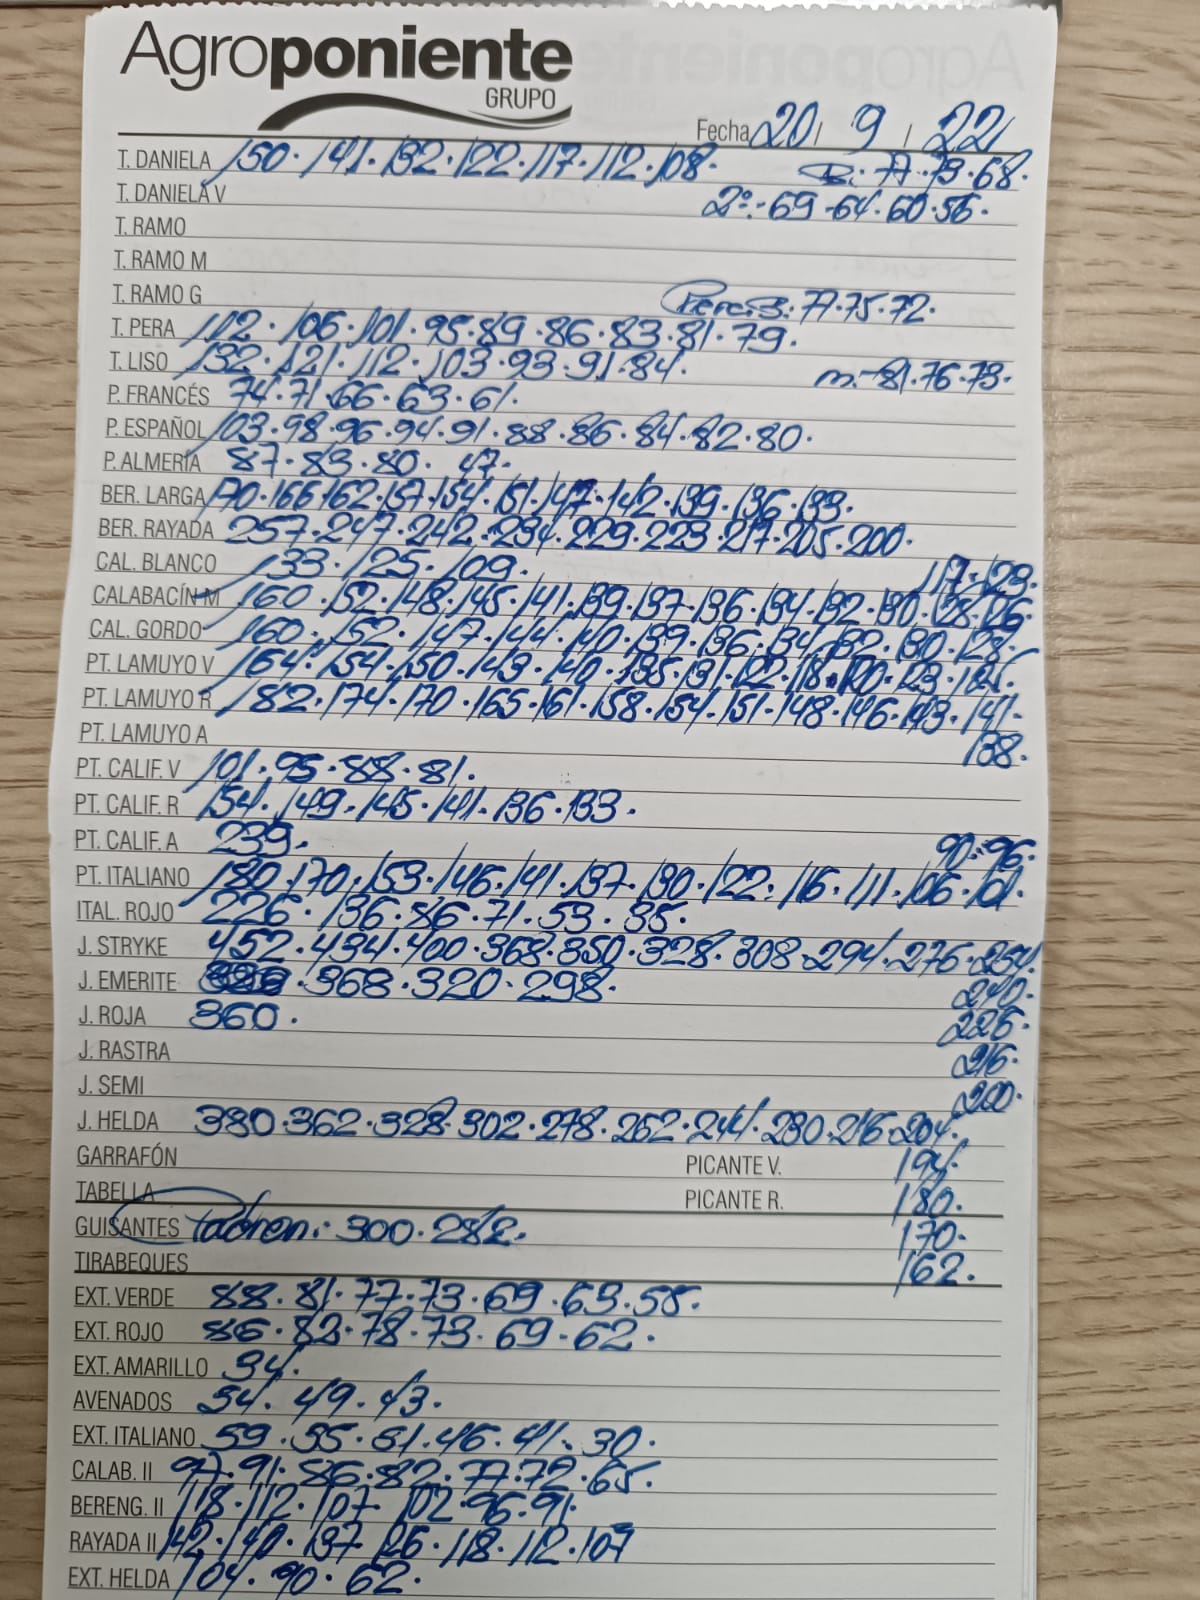 Agroponiente
GRUPO
Fecha 20 / 9 / 22
T. DANIELA 150 · 141 · 132 · 122 · 117 · 112 · 108 · B: 77 · 73 · 68 ·
T. DANIELA V 2º:- 69 - 64 · 60 · 56 ·
T. RAMO
T. RAMO M
T. RAMO G Pera. B: 77 · 75 · 72 ·
T. PERA 112 · 106 · 101 · 95 · 89 · 86 · 83 · 81 · 79 ·
T. LISO 132 · 121 · 112 · 103 · 93 · 91 · 84 · m:- 81 · 76 · 73 ·
P. FRANCÉS 74 · 71 · 66 · 63 · 61 ·
P. ESPAÑOL 103 · 98 · 96 · 94 · 91 · 88 · 86 · 84 · 82 · 80 ·
P. ALMERÍA 87 · 83 · 80 · 47 ·
BER. LARGA 170 · 166 · 162 · 157 · 154 · 151 · 147 · 142 · 139 · 136 · 133 ·
BER. RAYADA 257 · 247 · 242 · 234 · 229 · 223 · 217 · 205 · 200 ·
CAL. BLANCO 133 · 125 · 109 · 117 · 123 ·
CALABACÍN M 160 · 152 · 148 · 145 · 141 · 139 · 137 · 136 · 134 · 132 · 130 · 128 · 126 ·
CAL. GORDO 160 · 152 · 147 · 144 · 140 · 139 · 136 · 134 · 132 · 130 · 128 ·
PT. LAMUYO V 164 · 154 · 150 · 143 · 140 · 135 · 131 · 122 · 118 ·
PT. LAMUYO R 182 · 174 · 170 · 165 · 161 · 158 · 154 · 151 · 148 · 146 · 143 · 141 ·
PT. LAMUYO A 138 ·
PT. CALIF. V 101 · 95 · 88 · 81 ·
PT. CALIF. R 154 · 149 · 145 · 141 · 136 · 133 ·
PT. CALIF. A 239 · 90 · 96 ·
PT. ITALIANO 180 · 170 · 153 · 146 · 141 · 137 · 130 · 122 · 116 · 111 · 106 · 101 ·
ITAL. ROJO 226 · 136 · 86 · 71 · 53 · 35 ·
J. STRYKE 452 · 434 · 400 · 368 · 350 · 328 · 308 · 294 · 276 · 254 ·
J. EMERITE 368 · 320 · 298 · 240 ·
J. ROJA 360 · 226 ·
J. RASTRA 216 ·
J. SEMI 200 ·
J. HELDA 380 · 362 · 328 · 302 · 278 · 262 · 244 · 230 · 216 · 204 ·
GARRAFÓN PICANTE V. 194 ·
TABELLA PICANTE R. 180 ·
GUISANTES Padron: 300 · 282 · 170 ·
TIRABEQUES 162 ·
EXT. VERDE 88 · 81 · 77 · 73 · 69 · 63 · 58 ·
EXT. ROJO 86 · 82 · 78 · 73 · 69 · 62 ·
EXT. AMARILLO 34 ·
AVENADOS 54 · 49 · 43 ·
EXT. ITALIANO 59 · 55 · 51 · 46 · 41 · 30 ·
CALAB. II 97 · 91 · 86 · 82 · 77 · 72 · 65 ·
BERENG. II 118 · 112 · 107 · 102 · 96 · 91 ·
RAYADA II 142 · 140 · 137 · 126 · 118 · 112 · 107
EXT. HELDA 104 · 90 · 62 ·